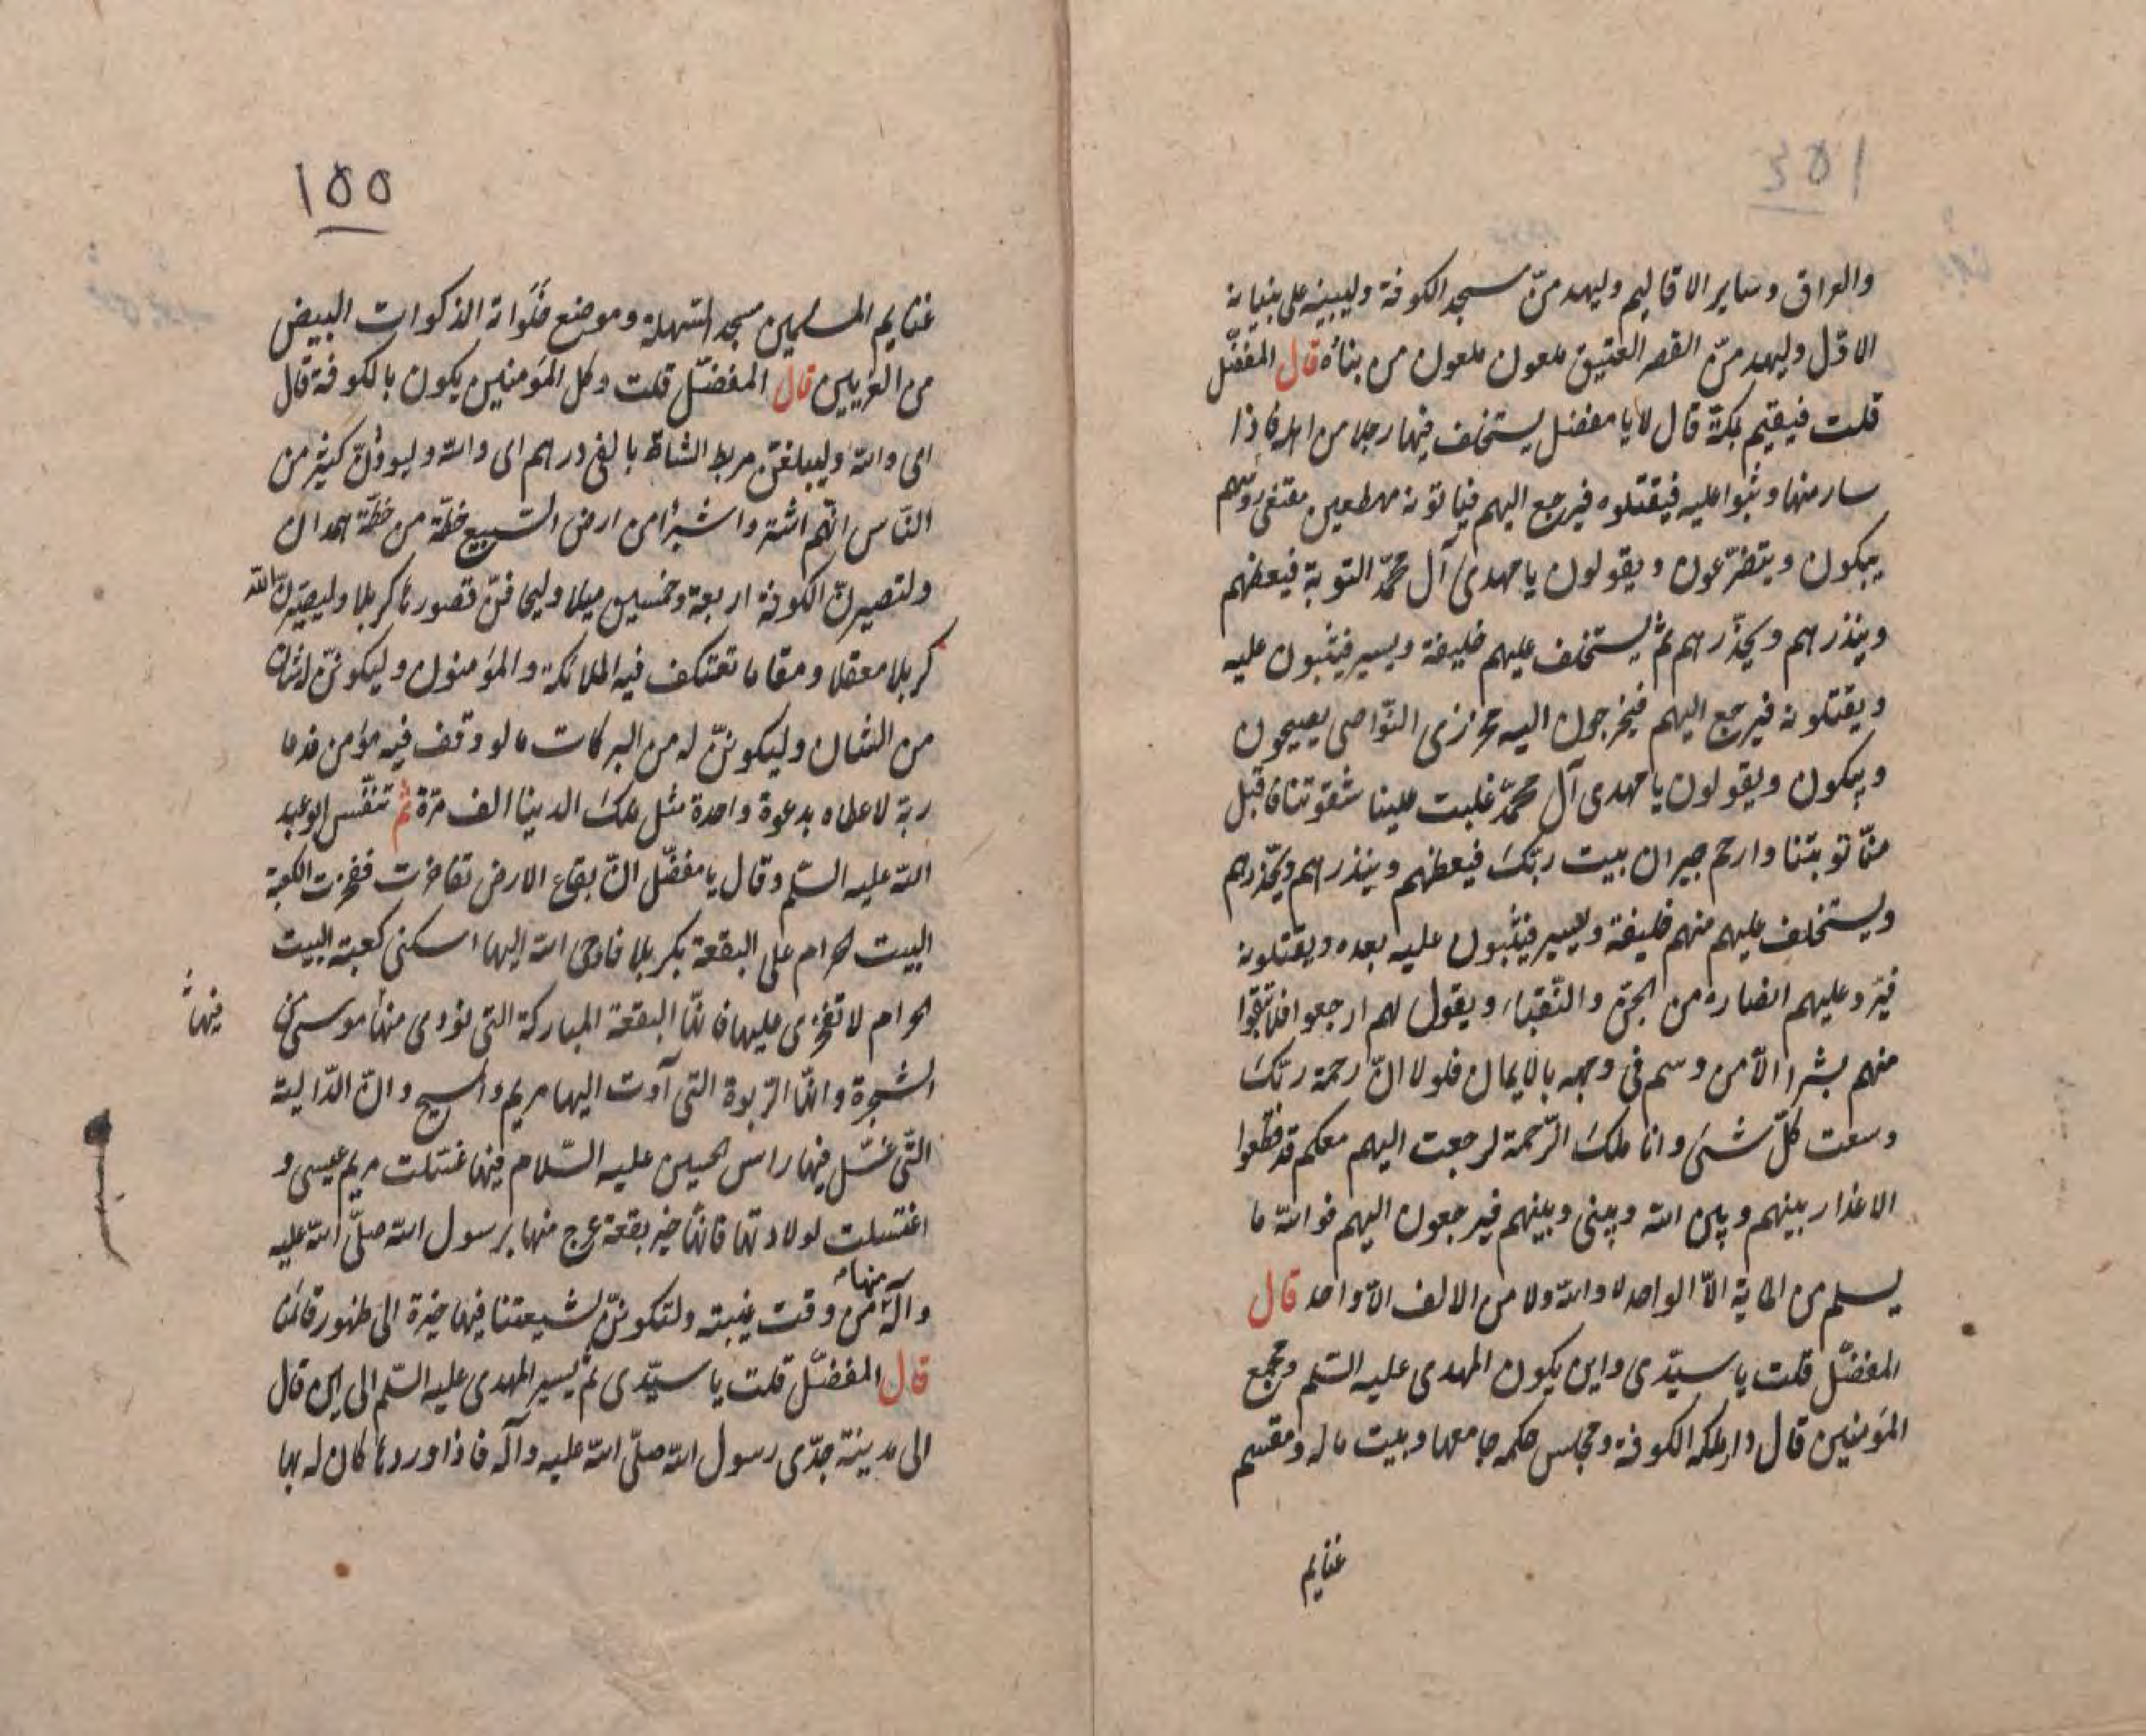 والعراق وساير الاقاليم وليهدمنّ مسجد الكوفة وليبنيه على بنيانه
الاوّل وليهدمنّ القصر العتيق ملعون ملعون من بناه قال المفضّل
قلت فيقيم بمكة قال لا يا مفضل يستخلف فيها رجلا من اهله فاذا
سار منها وثبوا عليه فيقتلوه فيرجع اليهم فياتونه مهطعين مقنعى رؤسهم
يبكون ويتضرّعون ويقولون يا مهدى آل محمّد التوبة فيعظهم
وينذرهم ويحذّرهم ثم يستخلف عليهم خليفة ويسير فيثبون عليه
ويقتلونه فيرجع اليهم فيخرجون اليه مجززى النّواصى يصيحون
ويبكون ويقولون يا مهدى آل محمّد غلبت علينا شقوتنا فاقبل
منّا توبتنا وارحم جيران بيت ربّك فيعظهم وينذرهم ويحذّرهم
ويستخلف عليهم منهم خليفة ويسير فيثبون عليه بعده ويقتلونه
فيردّ عليهم انصاره من الجنّ والنّقباء ويقول لهم ارجعوا فلا تبقوا
منهم بشرا الّا من وسم فى وجهه بالايمان فلولا انّ رحمة ربّك
وسعت كلّ شىء وانا ملك الرّحمة لرجعت اليهم معكم قد قطعوا
الاعذار بينهم وبين الله وبينى وبينهم فيرجعون اليهم فوالله ما
يسلم من الماية الّا الواحد لا والله ولا من الالف الّا واحد قال
المفضّل قلت يا سيّدى واين يكون المهدى عليه السّلم ومجمع
المؤمنين قال دار ملكه الكوفة ومجلس حكمه جامعها وبيت ماله ومقسم
غنايم
١٥٥
غنايم المسلمين مسجد السّهلة وموضع خلواته الذكوات البيض
من الغريين قال المفضّل قلت وكل المؤمنين يكون بالكوفة قال
اى والله وليبلغنّ مربط الشاة بالفى درهم اى والله وليودّنّ كثير من
النّاس انّهم اشتروا شبرا من ارض السّبيع خطّة من خطّة همدان
ولتصيرنّ الكوفة اربعة وخمسين ميلا وليجاورنّ قصورها كربلا وليصيّرنّ الله
كربلا معقلا ومقاما تعتكف فيه الملائكة والمؤمنون وليكوننّ لشان
من الشان وليكوننّ له من البركات ما لو وقف فيه مؤمن فدعا
ربّه لاعطاه بدعوة واحدة مثل ملك الدنيا الف مرّة ثم تنفّس ابوعبد
الله عليه السّلم وقال يا مفضّل انّ بقاع الارض تفاخرت ففخرت الكعبة
البيت الحرام على البقعة بكربلا فاوحى الله اليها اسكنى كعبة البيت
الحرام لا تفخرى عليها فانّها البقعة المباركة التى نودى منها موسى من
فيها
الشجرة وانّها الرّبوة التى آوت اليها مريم والمسيح وانّ الدّالية
التّى غسّل فيها راس الحسين عليه السّلام فيها غسّلت مريم عيسى و
اغتسلت لولادتها فانّها خير بقعة عرج منها برسول الله صلّى الله عليه
وآله منها من وقت غيبته ولتكوننّ لشيعتنا فيها خيرة الى ظهور قائمنا
قال المفضّل قلت يا سيّدى ثم يسير المهدى عليه السّلم الى اين قال
الى مدينة جدّى رسول الله صلّى الله عليه وآله فاذا وردها كان له بها